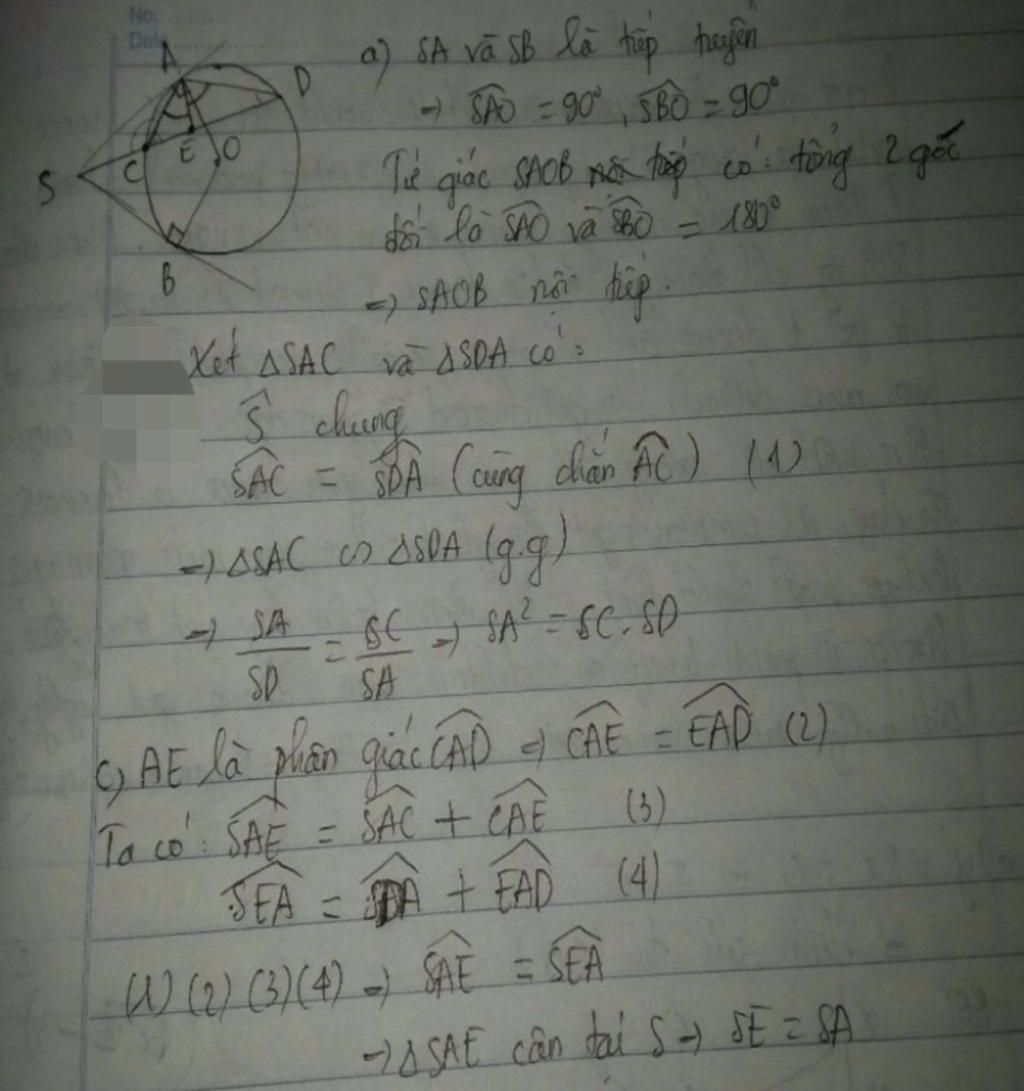 No. ............
Date ..................
A
D
S
C
E
O
B
a) SA và SB là tiếp tuyến
→ SAO = 90°, SBO = 90°
Tứ giác SAOB có: tổng 2 góc
đối là SAO và SBO = 180°
=> SAOB nội tiếp.
Xét ΔSAC và ΔSDA có:
S chung
SAC = SDA (cùng chắn AC) (1)
=> ΔSAC ∽ ΔSDA (g.g)
=> SA/SD = SC/SA => SA² = SC.SD
c) AE là phân giác CAD => CAE = EAD (2)
Ta có: SAE = SAC + CAE (3)
SEA = SDA + EAD (4)
(1) (2) (3) (4) => SAE = SEA
→ ΔSAE cân tại S → SE = SA